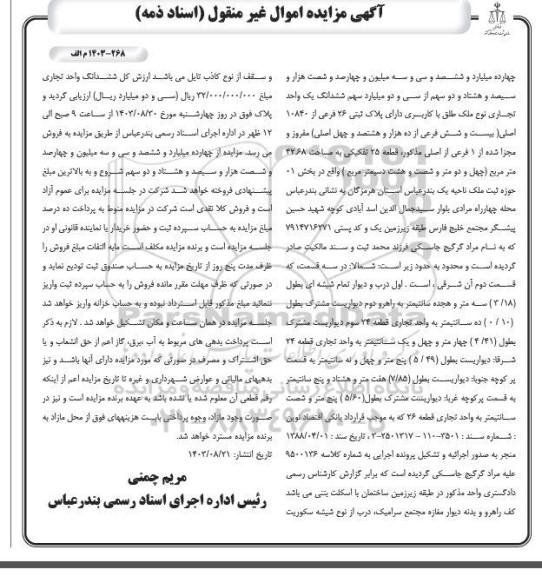 آگهی مزایده اموال غیر منقول (اسناد ذمه)
۱۴۰۳-۲۶۸ م الف
چهارده میلیارد و ششصد و سی و سه میلیون و چهارصد و شصت هزار و
سیصد و هشتاد و دو سهم از سی و دو میلیارد سهم ششدانگ یک واحد
تجاری نوع ملک طلق با کاربری دارای پلاک ثبتی ۲۶ فرعی از ۱۰۸۴۰
اصلی( بیست و شش فرعی از ده هزار و هشتصد و چهل اصلی) مفروز و
مجزا شده از ۱ فرعی از اصلی مذکور، قطعه ۲۵ تفکیکی به مساحت ۴۲.۶۸
متر مربع (چهل و دو متر و شصت و هشت دسیمتر مربع ) واقع در بخش ۰۱
حوزه ثبت ملک ناحیه یک بندرعباس استان هرمزگان به نشانی بندرعباس
محله چهارراه مرادی بلوار سیدجمال الدین اسد آبادی کوچه شهید حسین
پیشگر مجتمع خلیج فارس طبقه زیرزمین یک و کد پستی ۷۹۱۴۷۱۶۲۷۱
که به نام مراد گرگیج جاسکی فرزند محمد ثبت و سند مالکیت صادر
گردیده است و محدود به حدود زیر است: شمالا: در سه قسمت، که
قسمت دوم آن شرقی ، است . اول درب و دیوار تمام شیشه ای بطول
(۳/۱۸ ) سه متر و هجده سانتیمتر به راهرو دوم دیواریست مشترک بطول
( ۰ / ۱۰ ) ده سانتیمتر به واحد تجاری قطعه ۲۴ سوم دیواریست مشترک
بطول (۴/۴۱ ) چهار متر و چهل و یک سانتیمتر به واحد تجاری قطعه ۲۴
شرقا: دیواریست بطول (۴۹ / ۵ ) پنج متر و چهل و نه سانتیمتر به قسمت
پر کوچه جنوبا: دیواریست بطول (۷/۸۵) هفت متر و هشتاد و پنج سانتیمتر
به قسمت پرکوچه غربا: دیواریست مشترک بطول(۵/۶۰) پنج متر و شصت
سانتیمتر به واحد تجاری قطعه ۲۶ که به موجب قرارداد بانکی اقتصاد نوین
: شماره سند : ۳۵۰۱-۱۱۰-۲۵۰۱۳۱۷-۲ ، تاریخ سند : ۱۳۸۸/۰۴/۰۱
منجر به صدور اجرائیه و تشکیل پرونده اجرایی به شماره کلاسه ۹۵۰۰۱۳۶
علیه مراد گرگیج جاسکی گردیده است که برابر گزارش کارشناس رسمی
دادگستری واحد مذکور در طبقه زیرزمین ساختمان با اسکلت بتنی می باشد
کف راهرو و بدنه دیوار مغازه مجتمع سرامیک، درب از نوع شیشه سکوریت
و سقف از نوع کاذب تایل می باشد ارزش کل ششدانگ واحد تجاری
مبلغ ۳۲/۰۰۰/۰۰۰/۰۰۰ ریال (سی و دو میلیارد ریال) ارزیابی گردید و
پلاک فوق در روز چهارشنبه مورخ ۱۴۰۳/۰۸/۳۰ از ساعت ۹ صبح الی
۱۲ ظهر در اداره اجرای اسناد رسمی بندرعباس از طریق مزایده به فروش
می رسد. مزایده از چهارده میلیارد و ششصد و سی و سه میلیون و چهارصد
و شصت هزار و سیصد و هشتاد و دو سهم شروع و به بالاترین مبلغ
پیشنهادی فروخته خواهد شد شرکت در جلسه مزایده برای عموم آزاد
است و فروش کلا نقدی است شرکت در مزایده منوط به پرداخت ده درصد
مبلغ مزایده به حساب سپرده ثبت و حضور خریدار یا نماینده قانونی او در
جلسه مزایده است و برنده مزایده مکلف است مابه التفات مبلغ فروش را
ظرف مدت پنج روز از تاریخ مزایده به حساب صندوق ثبت تودیع نماید و
در صورتی که ظرف مهلت مقرر مانده فروش را به حساب سپرده ثبت واریز
ننمائید مبلغ مذکور قابل استرداد نبوده و به حساب خزانه واریز خواهد شد
جلسه مزایده در همان ساعت و مکان تشکیل خواهد شد . لازم به ذکر
است پرداخت بدهی های مربوط به آب ،برق، گاز اعم از حق انشعاب و یا
حق اشتراک و مصرف در صورتی که مورد مزایده دارای آنها باشد و نیز
بدهیهای مالیاتی و عوارض شهرداری و غیره تا تاریخ مزایده اعم از اینکه
رقم قطعی آن معلوم شده یا نشده باشد به عهده برنده مزایده است و نیز در
صورت وجود مازاد، وجوه پرداختی بابت هزینههای فوق از محل مازاد به
برنده مزایده مسترد خواهد شد.
تاریخ انتشار: ۱۴۰۳/۰۸/۲۱
مریم چمنی
رئیس اداره اجرای اسناد رسمی بندرعباس